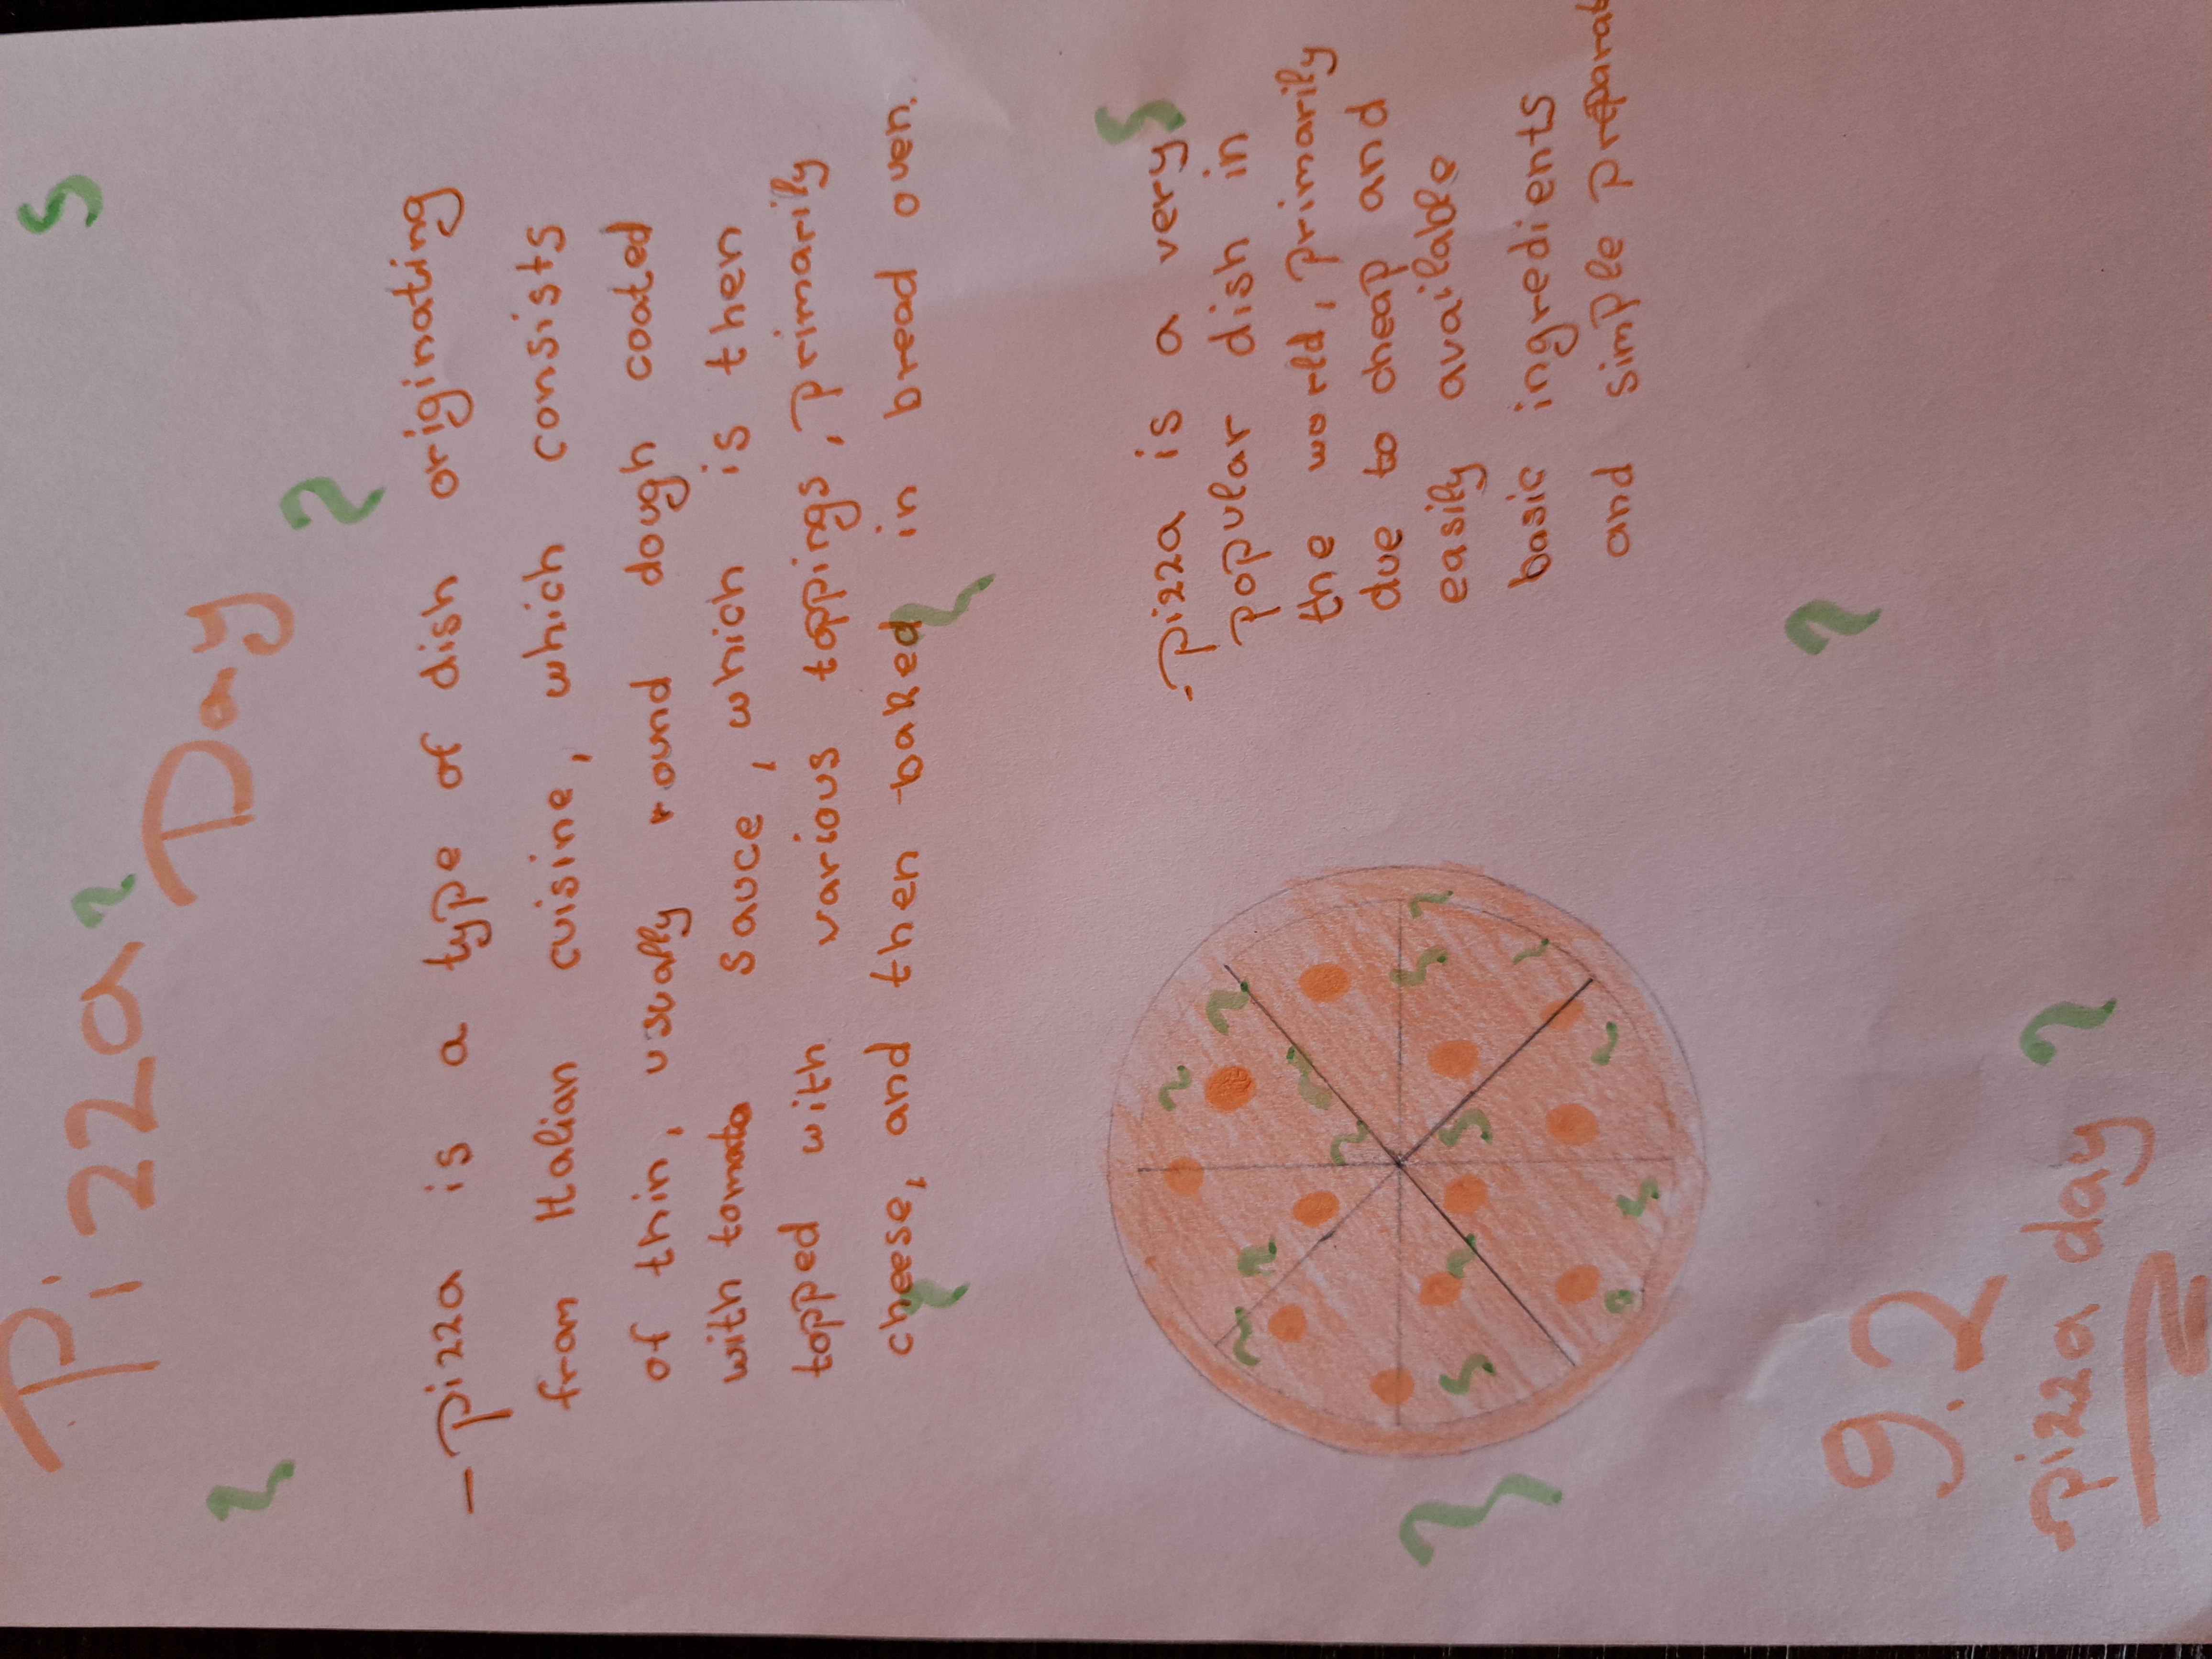 Pizza Day
-pizza is a type of dish originating
from Italian cuisine, which consists
of thin, usually round dough coated
with tomato sauce, which is then
topped with various toppings, primarily
cheese, and then baked in bread oven.
-pizza is a very
popular dish in
the world, primarily
due to cheap and
easily available
basic ingredients
and simple
9.2
pizza day